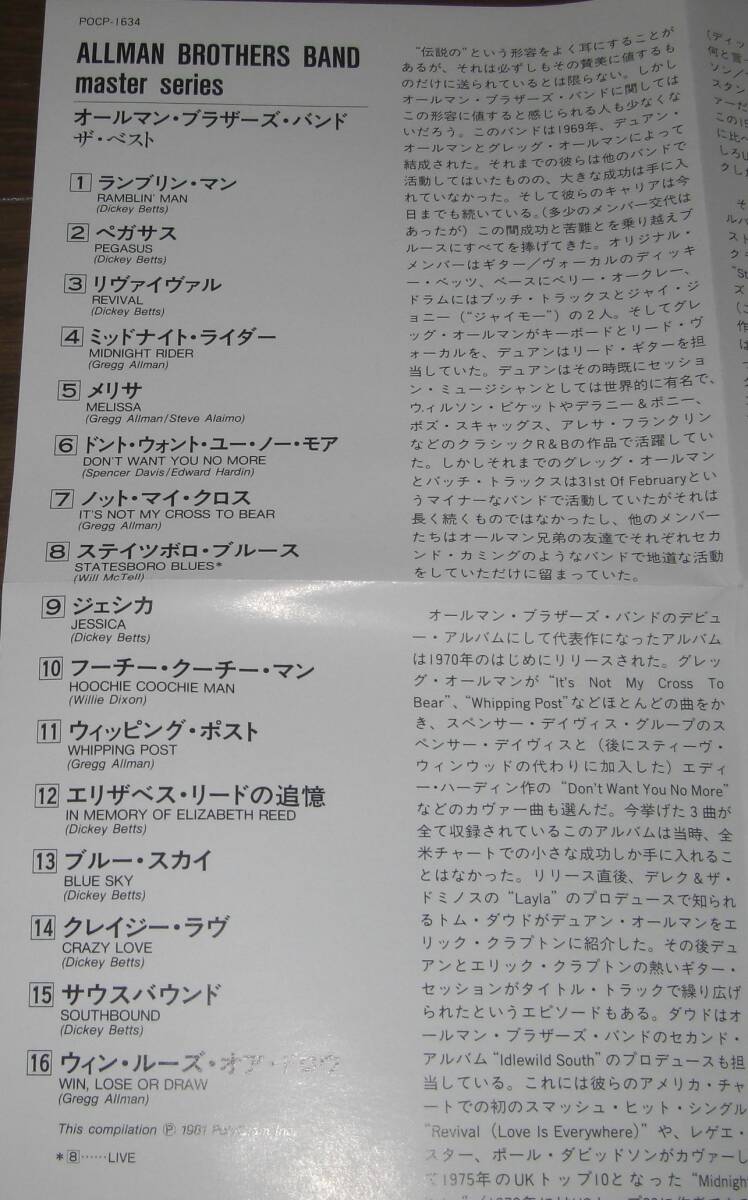 POCP-1634
ALLMAN BROTHERS BAND
master series
オールマン・ブラザーズ・バンド
ザ・ベスト
1 ランブリン・マン
RAMBLIN' MAN
(Dickey Betts)
2 ペガサス
PEGASUS
(Dickey Betts)
3 リヴァイヴァル
REVIVAL
(Dickey Betts)
4 ミッドナイト・ライダー
MIDNIGHT RIDER
(Gregg Allman)
5 メリサ
MELISSA
(Gregg Allman/Steve Alaimo)
6 ドント・ウォント・ユー・ノー・モア
DON'T WANT YOU NO MORE
(Spencer Davis/Edward Hardin)
7 ノット・マイ・クロス
IT'S NOT MY CROSS TO BEAR
(Gregg Allman)
8 ステイツボロ・ブルース
STATESBORO BLUES*
(Will McTell)
9 ジェシカ
JESSICA
(Dickey Betts)
10 フーチー・クーチー・マン
HOOCHIE COOCHIE MAN
(Willie Dixon)
11 ウィッピング・ポスト
WHIPPING POST
(Gregg Allman)
12 エリザベス・リードの追憶
IN MEMORY OF ELIZABETH REED
(Dickey Betts)
13 ブルー・スカイ
BLUE SKY
(Dickey Betts)
14 クレイジー・ラヴ
CRAZY LOVE
(Dickey Betts)
15 サウスバウンド
SOUTHBOUND
(Dickey Betts)
16 ウィン・ルーズ・オア・ドロウ
WIN, LOSE OR DRAW
(Gregg Allman)
This compilation Ⓟ 1981 PolyGram Inc.
*8……LIVE
"伝説の"という形容をよく耳にすることが
あるが、それは必ずしもその賛美に値するも
のだけに送られているとは限らない。しかし
オールマン・ブラザーズ・バンドに関しては
この形容に値すると感じられる人も少なくな
いだろう。このバンドは1969年、デュアン・
オールマンとグレッグ・オールマンによって
結成された。それまでの彼らは他のバンドで
活動してはいたものの、大きな成功は手に入
れていなかった。そして彼らのキャリアは今
日までも続いている。(多少のメンバー交代は
あったが) この間成功と苦難とを乗り越えブ
ルースにすべてを捧げてきた。オリジナル・
メンバーはギター/ヴォーカルのディッキ
ー・ベッツ、ベースにベリー・オークレー、
ドラムにはブッチ・トラックスとジャイ・ジ
ョニー ("ジャイモー") の2人。そしてグレ
ッグ・オールマンがキーボードとリード・ヴ
ォーカルを、デュアンはリード・ギターを担
当していた。デュアンはその時既にセッショ
ン・ミュージシャンとしては世界的に有名で、
ウィルソン・ピケットやデラニー＆ボニー、
ボズ・スキャッグス、アレサ・フランクリン
などのクラシックR＆Bの作品で活躍してい
た。しかしそれまでのグレッグ・オールマン
とバッチ・トラックスは31st Of Februaryとい
うマイナーなバンドで活動していたがそれは
長く続くものではなかったし、他のメンバー
たちはオールマン兄弟の友達でそれぞれセカ
ンド・カミングのようなバンドで地道な活動
をしていただけに留まっていた。
オールマン・ブラザーズ・バンドのデビュ
ー・アルバムにして代表作になったアルバム
は1970年のはじめにリリースされた。グレッ
グ・オールマンが "It's Not My Cross To
Bear"、"Whipping Post"などほとんどの曲をか
き、スペンサー・デイヴィス・グループのス
ペンサー・デイヴィスと (後にスティーヴ・
ウィンウッドの代わりに加入した) エディ
ー・ハーディン作の "Don't Want You No More"
などのカヴァー曲も選んだ。今挙げた3曲が
全て収録されているこのアルバムは当時、全
米チャートでの小さな成功しか手に入れるこ
とはなかった。リリース直後、デレク＆ザ・
ドミノスの "Layla" のプロデュースで知られ
るトム・ダウドがデュアン・オールマンをエ
リック・クラプトンに紹介した。その後デュ
アンとエリック・クラプトンの熱いギター・
セッションがタイトル・トラックで繰り広げ
られたというエピソードもある。ダウドはオ
ールマン・ブラザーズ・バンドのセカンド・
アルバム "Idlewild South" のプロデュースも担
当している。これには彼らのアメリカ・チャ
ートでの初のスマッシュ・ヒット・シングル
"Revival (Love Is Everywhere)" や、レゲエ・
スター、ポール・ダビッドソンがカヴァーし
て1975年のUKトップ10となった "Midnigh